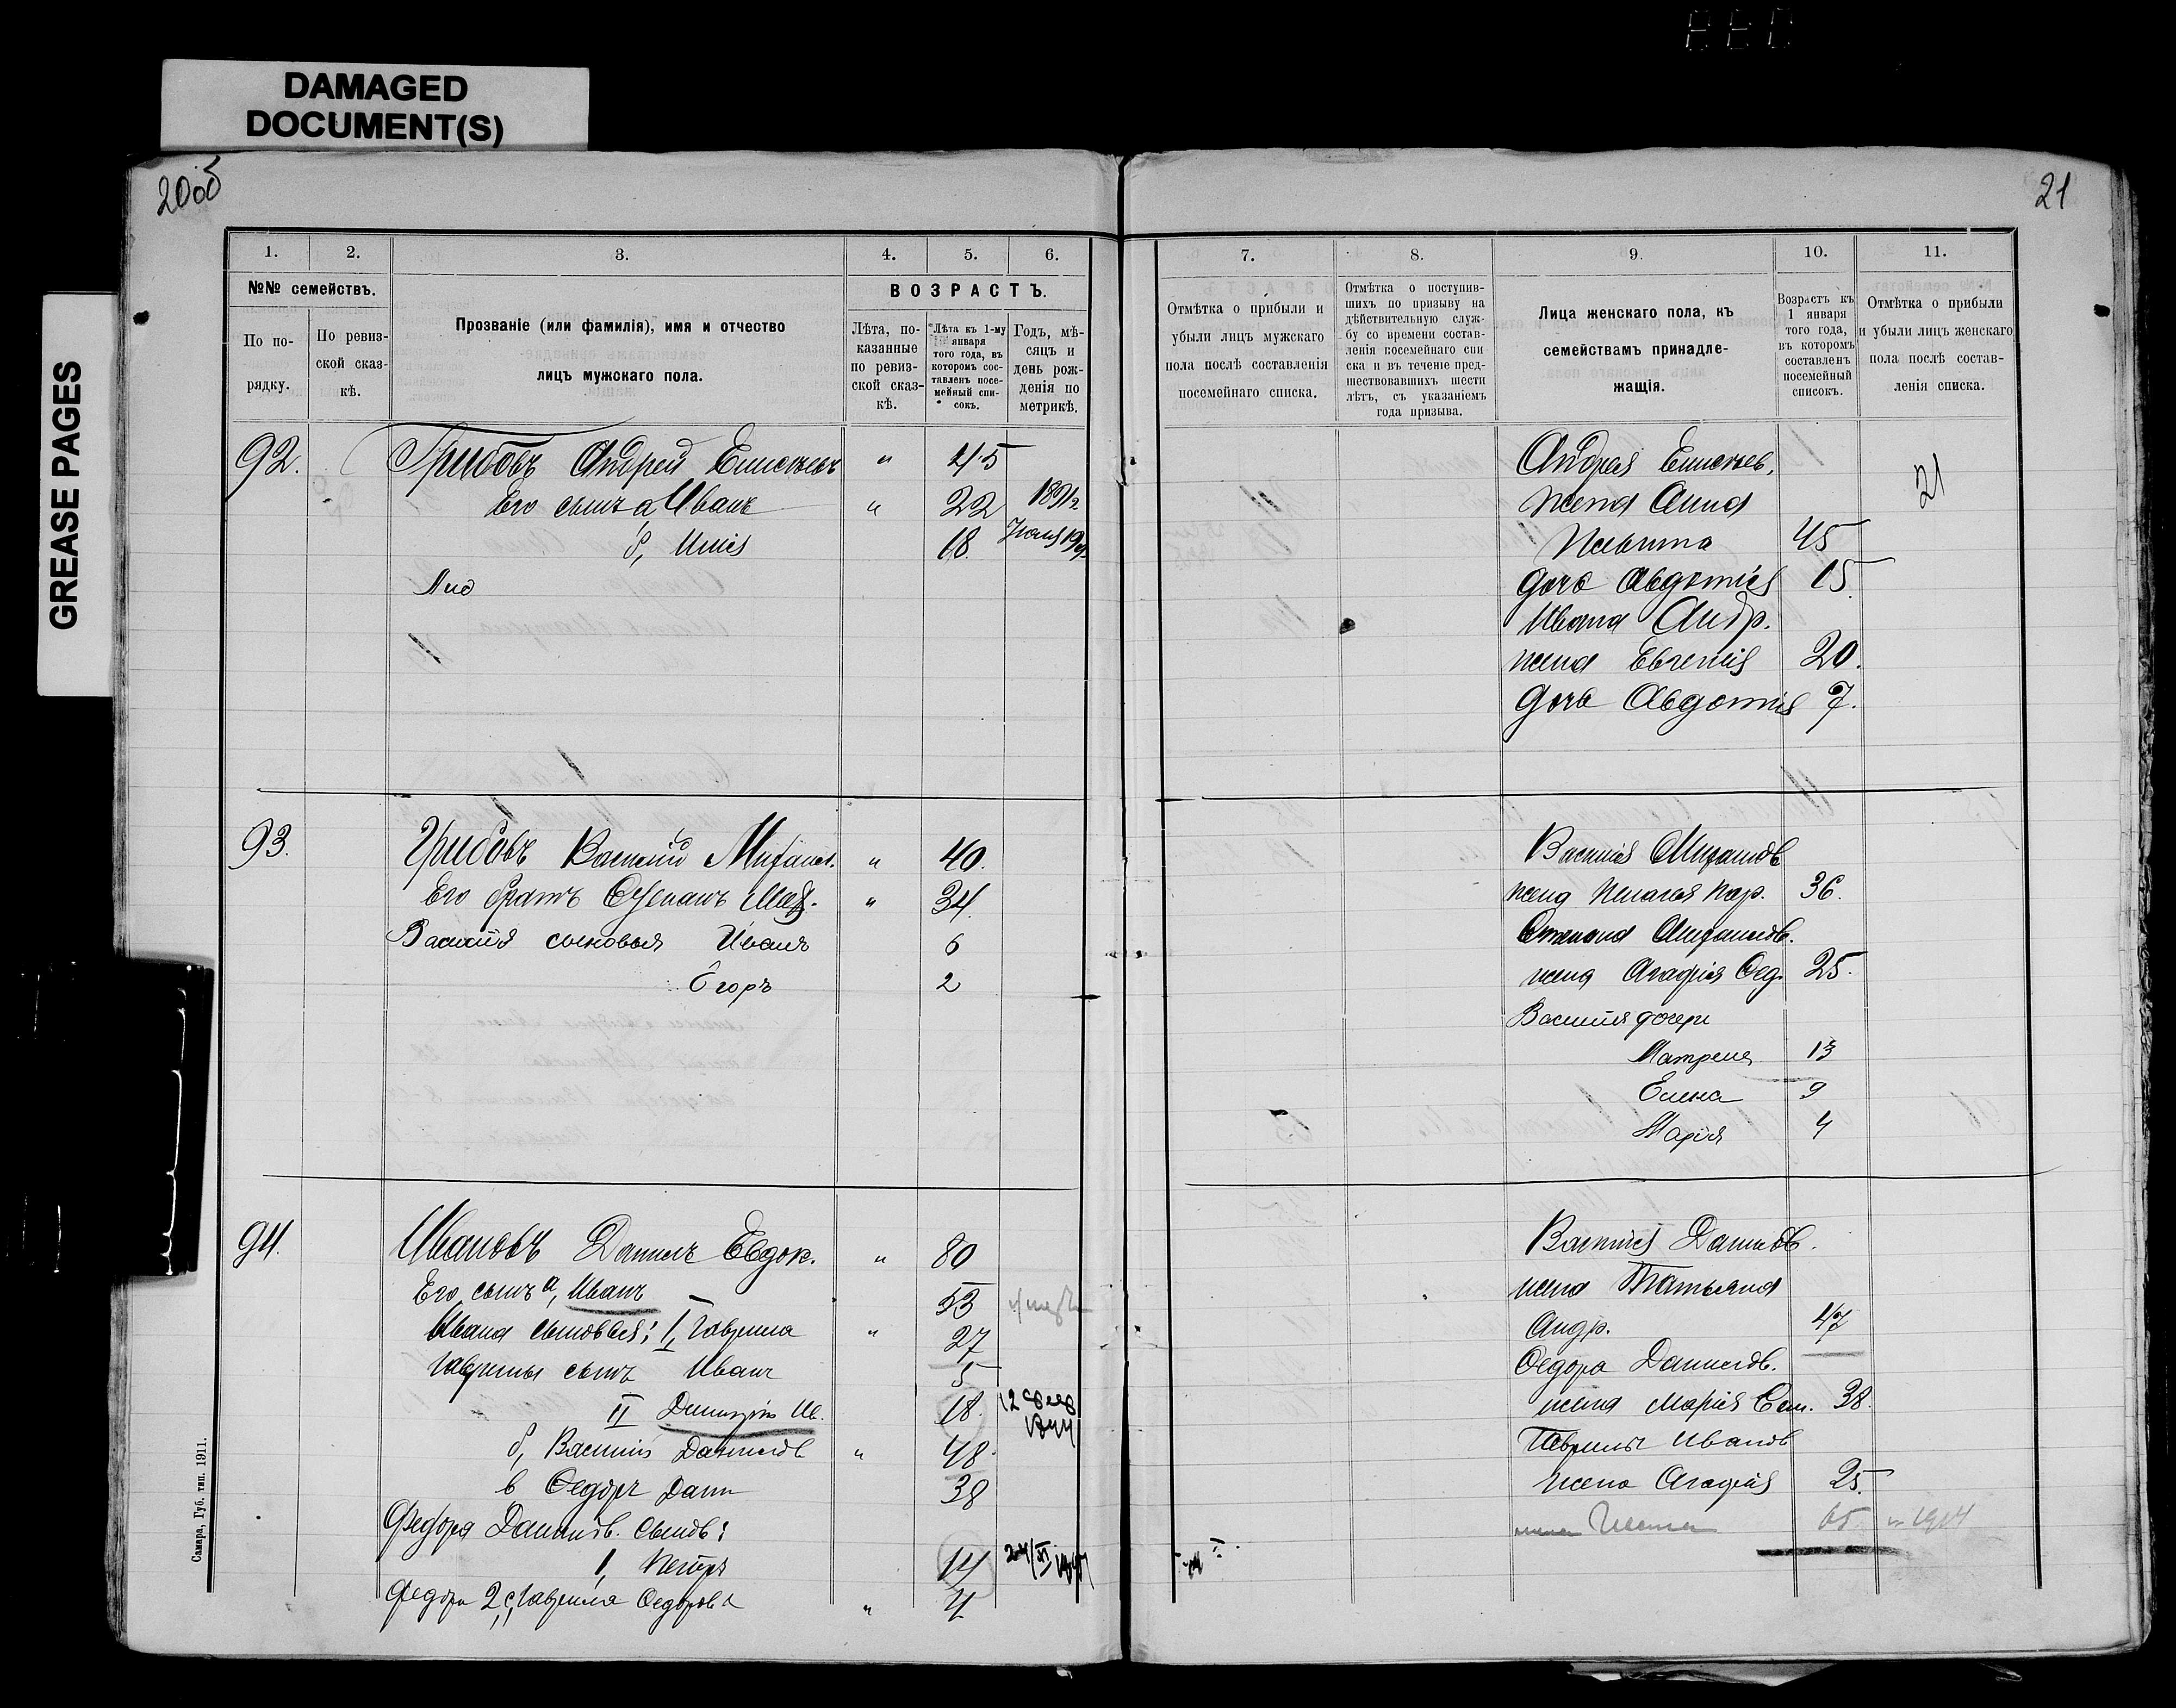 DAMAGED
DOCUMENT(S)
GREASE PAGES
20об
21
1.
2.
3.
4.
5.
6.
№№ семействъ.
По по-
рядку.
По ревиз-
ской сказ-
кѣ.
Прозваніе (или фамилія), имя и отчество
лицъ мужскаго пола.
ВОЗРАСТЪ.
Лѣта, по-
казанные
по ревиз-
ской сказ-
кѣ.
Лѣта къ 1-му
января
того года, въ
которомъ сос-
тавленъ посе-
мейный спи-
сокъ.
Годъ, мѣ-
сяцъ и
день рож-
денія по
метрикѣ.
92. Грибовъ Андрей Елисѣевъ " 45
Его сынъ а Иванъ " 22 1891
18
93. Грибовъ Василій Михаил. " 40.
Его братъ Степанъ Мих. " 34.
Василія сыновья Иванъ 6
Егоръ 2
94. Ивановъ Данилъ Евдок. " 80
Его сынъ а, Иванъ 53
Ивана сыновья: I, Гаврила " 27
Гаврилы сынъ Иванъ 5
II Димитрій Ив. 18. 12
б, Василій Данилов " 48.
в Федоръ Дани 38
Федора Данилов. сынов:
1, Петръ 14 24/XI
Федора 2, Гаврила Федоров " 4
Самара, Губ. тип. 1911.
7.
8.
9.
10.
11.
Отмѣтка о прибыли и
убыли лицъ мужскаго
пола послѣ составленія
посемейнаго списка.
Отмѣтка о поступив-
шихъ по призыву на
дѣйствительную служ-
бу со времени состав-
ленія посемейнаго спи
ска и въ теченіе пред-
шествовавшихъ шести
лѣтъ, съ указаніемъ
года призыва.
Лица женскаго пола, къ
семействамъ принадле-
жащія.
Возрастъ къ
1 января
того года,
въ которомъ
составленъ
посемейный
списокъ.
Отмѣтка о прибыли
и убыли лицъ женскаго
пола послѣ состав-
ленія списка.
Андрея Елисѣев.
жена Анна
45
21
дочь Авдотія 15.
Ивана Андр.
жена Евгенія 20.
дочь Авдотія 7.
Василія Михаилов
жена Пелагея Кар. 36.
Степана Михаилов.
жена Агафія Фед. 25.
Василія дочери
Матрена 13
Елена 9
Марія 4
Василія Данилов.
жена Татьяна
Андр. 47
Федора Данилов.
жена Марія Сем. 38.
Гаврилы Иванов
жена Агафія 25.
65 1914